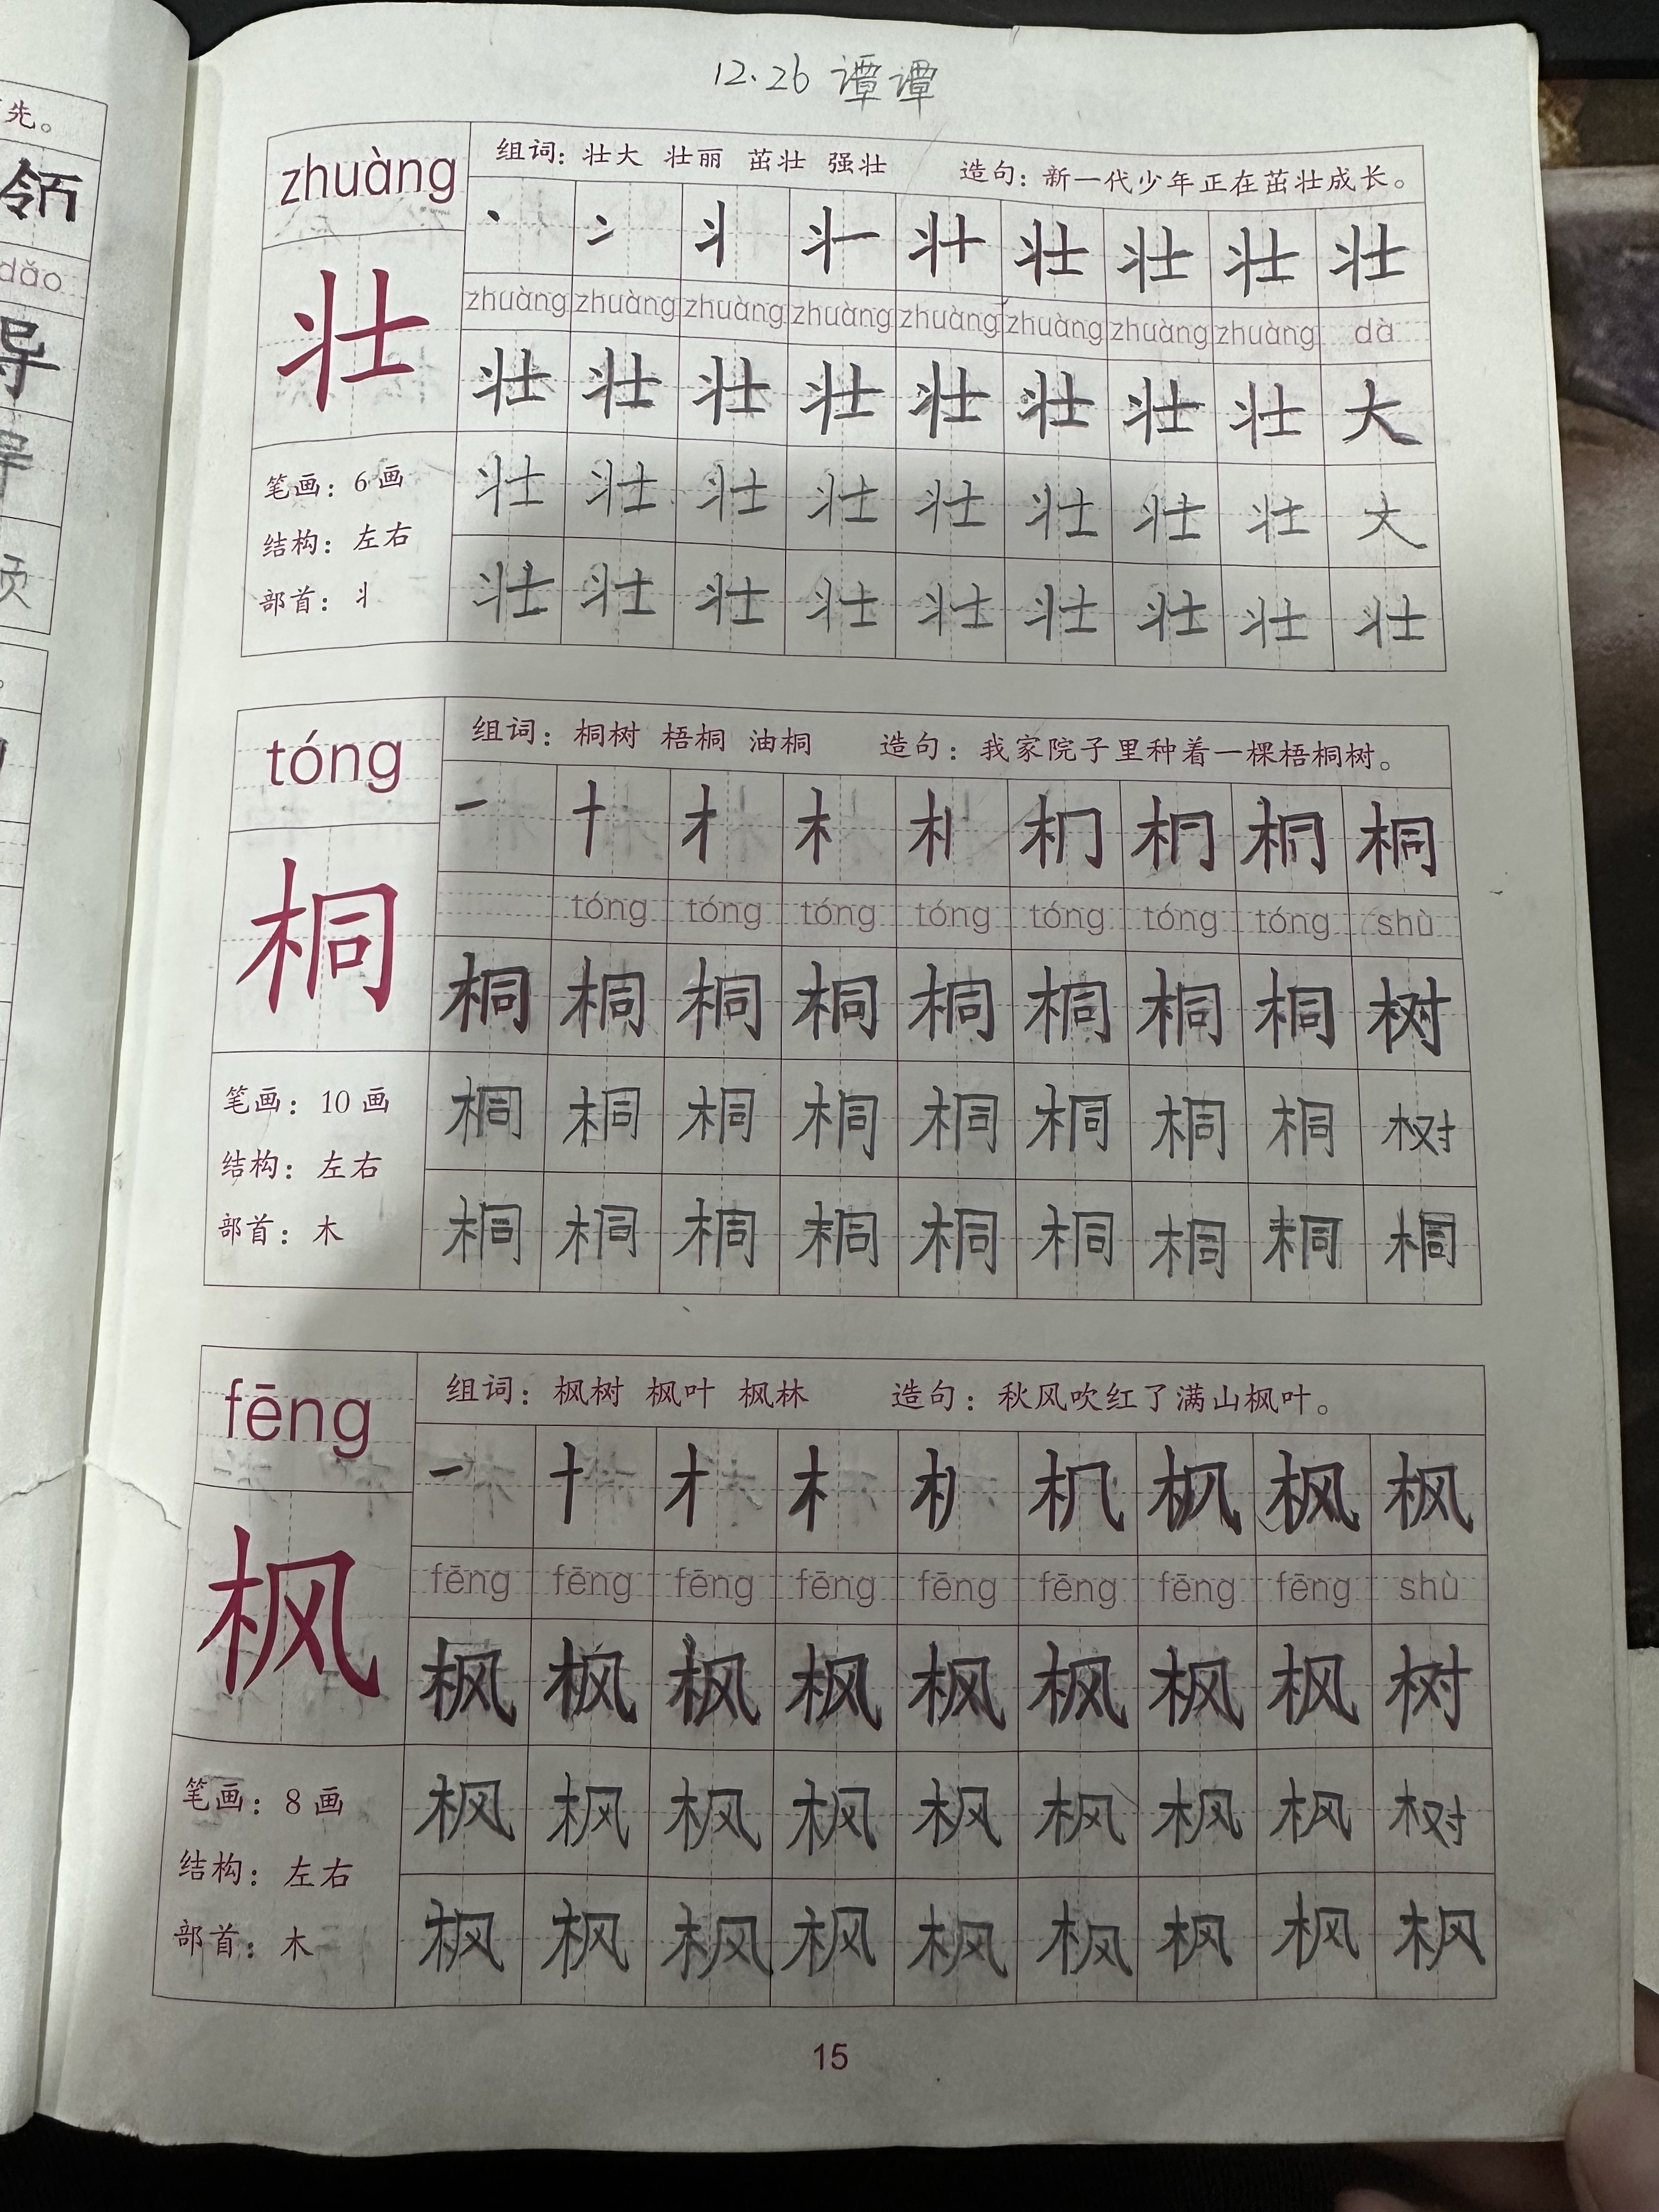 12.26 谭谭
先。
领
dǎo
导
zhuàng
组词：壮大 壮丽 茁壮 强壮 造句：新一代少年正在茁壮成长。
壮 壮 壮 壮
zhuàng zhuàng zhuàng zhuàng zhuàng zhuàng zhuàng zhuàng dà
壮
壮 壮 壮 壮 壮 壮 壮 壮 大
笔画：6画
壮 壮 壮 壮 壮 壮 壮 壮 大
结构：左右
部首：丬
壮 壮 壮 壮 壮 壮 壮 壮 壮
tóng
组词：桐树 梧桐 油桐 造句：我家院子里种着一棵梧桐树。
一 十 才 木 桐
tóng tóng tóng tóng tóng tóng tóng shù
桐
桐 桐 桐 桐 桐 桐 桐 桐 树
笔画：10画
桐 桐 桐 桐 桐 桐 桐 桐 树
结构：左右
部首：木
桐 桐 桐 桐 桐 桐 桐 桐 桐
fēng
组词：枫树 枫叶 枫林 造句：秋风吹红了满山枫叶。
一 十 才 木 机 枫 枫
fēng fēng fēng fēng fēng fēng fēng fēng shù
枫
枫 枫 枫 枫 枫 枫 枫 枫 树
笔画：8画
枫 枫 枫 枫 枫 枫 枫 枫 树
结构：左右
部首：木
枫 枫 枫 枫 枫 枫 枫 枫 枫
15